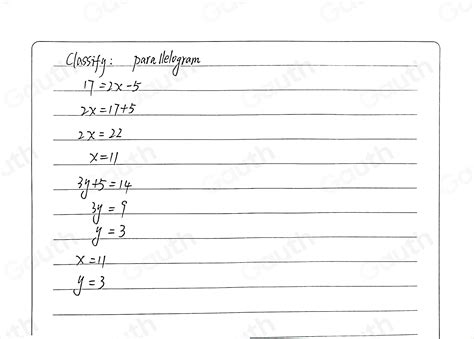 Classify: parallelogram
17=2x-5
2x=17+5
2x=22
x=11
3y+5=14
3y=9
y=3
x=11
y=3